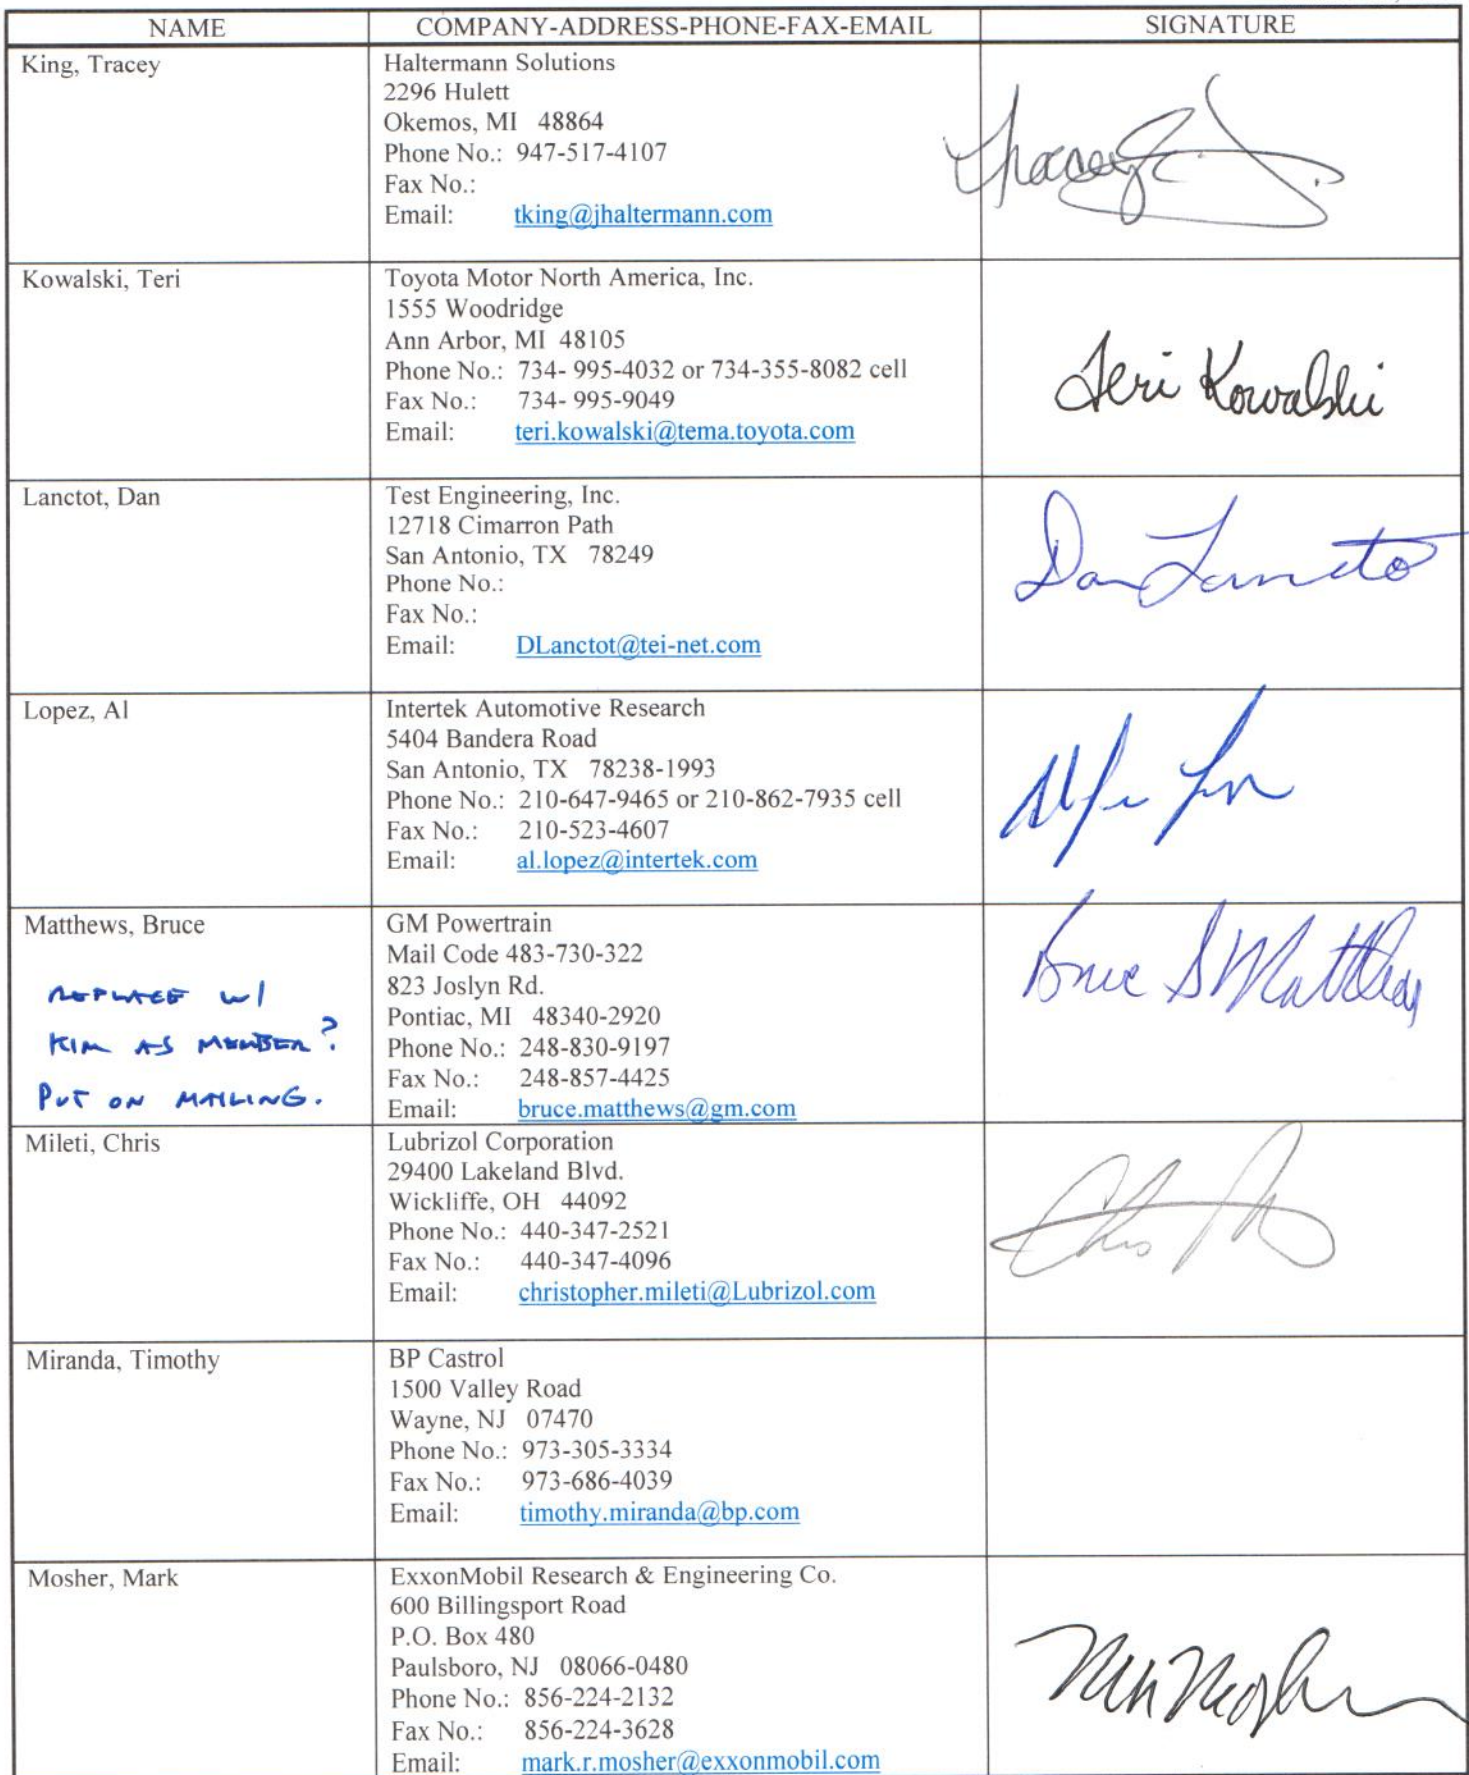 NAME COMPANY-ADDRESS-PHONE-FAX-EMAIL SIGNATURE
King, Tracey
Haltermann Solutions
2296 Hulett
Okemos, MI 48864
Phone No.: 947-517-4107
Fax No.:
Email: tking@jhaltermann.com
Kowalski, Teri
Toyota Motor North America, Inc.
1555 Woodridge
Ann Arbor, MI 48105
Phone No.: 734- 995-4032 or 734-355-8082 cell
Fax No.: 734- 995-9049
Email: teri.kowalski@tema.toyota.com
Teri Kowalski
Lanctot, Dan
Test Engineering, Inc.
12718 Cimarron Path
San Antonio, TX 78249
Phone No.:
Fax No.:
Email: DLanctot@tei-net.com
Lopez, Al
Intertek Automotive Research
5404 Bandera Road
San Antonio, TX 78238-1993
Phone No.: 210-647-9465 or 210-862-7935 cell
Fax No.: 210-523-4607
Email: al.lopez@intertek.com
Matthews, Bruce
REPLACE W/
KIM AS MEMBER?
PUT ON MAILING.
GM Powertrain
Mail Code 483-730-322
823 Joslyn Rd.
Pontiac, MI 48340-2920
Phone No.: 248-830-9197
Fax No.: 248-857-4425
Email: bruce.matthews@gm.com
Bruce S Matthews
Mileti, Chris
Lubrizol Corporation
29400 Lakeland Blvd.
Wickliffe, OH 44092
Phone No.: 440-347-2521
Fax No.: 440-347-4096
Email: christopher.mileti@Lubrizol.com
Miranda, Timothy
BP Castrol
1500 Valley Road
Wayne, NJ 07470
Phone No.: 973-305-3334
Fax No.: 973-686-4039
Email: timothy.miranda@bp.com
Mosher, Mark
ExxonMobil Research & Engineering Co.
600 Billingsport Road
P.O. Box 480
Paulsboro, NJ 08066-0480
Phone No.: 856-224-2132
Fax No.: 856-224-3628
Email: mark.r.mosher@exxonmobil.com